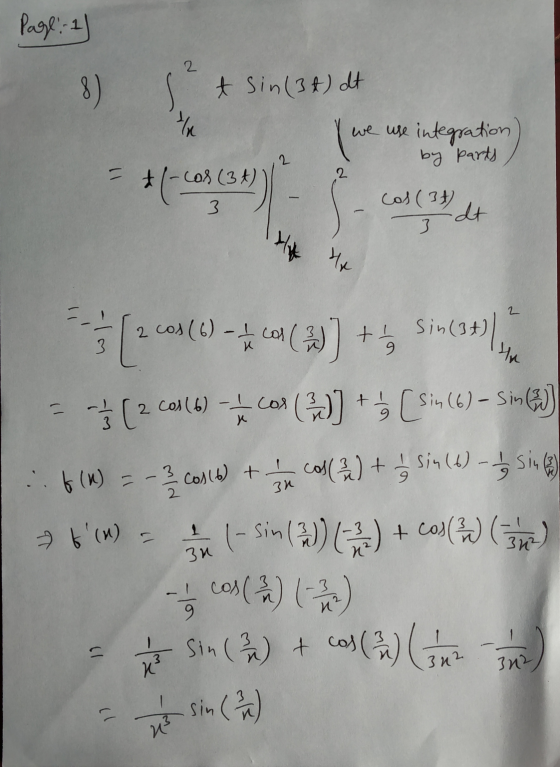 Page:-1
8) ∫_{1/x}^{2} t Sin(3t) dt
(we use integration by parts)
= t(-cos(3t)/3)|_{1/x}^{2} - ∫_{1/x}^{2} - cos(3t)/3 dt
= -1/3 [2 cos(6) - 1/x cos(3/x)] + 1/9 Sin(3t)|_{1/x}^{2}
= -1/3 [2 cos(6) - 1/x cos(3/x)] + 1/9 [Sin(6) - Sin(3/x)]
∴ f(x) = -3/2 cos(6) + 1/3x cos(3/x) + 1/9 Sin(6) - 1/9 Sin(3/x)
⇒ f'(x) = 1/3x (-Sin(3/x)) (-3/x²) + cos(3/x) (-1/3x²)
-1/9 cos(3/x) (-3/x²)
= 1/x³ Sin(3/x) + cos(3/x) (1/3x² - 1/3x²)
= 1/x³ sin(3/x)